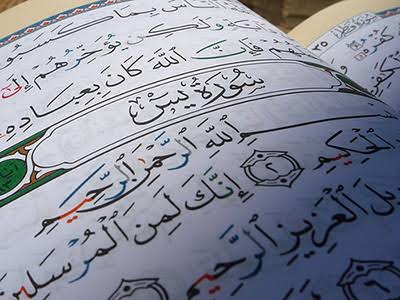 ٱلنَّاسَ بِمَا كَسَبُوا
وَلَٰكِن يُؤَخِّرُهُمْ إِلَىٰ
فَإِنَّ ٱللَّهَ كَانَ بِعِبَادِهِ
سُورَةُ يسٓ
ٱللَّهِ ٱلرَّحْمَٰنِ ٱلرَّحِيمِ
ٱلْحَكِيمِ ٢ إِنَّكَ لَمِنَ ٱلْمُرْسَلِينَ
ٱلْعَزِيزِ ٱلرَّحِيمِ